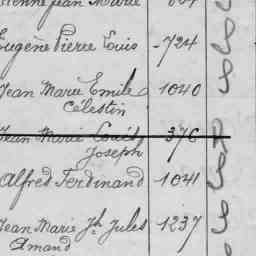 Jean Marie
Eugène Pierre Louis 724
Jean Marie Emile 1040
Célestin
Jean Marie 376
Joseph
Alfred Ferdinand 1041
Jean Marie Jh Jules 1237
Amand